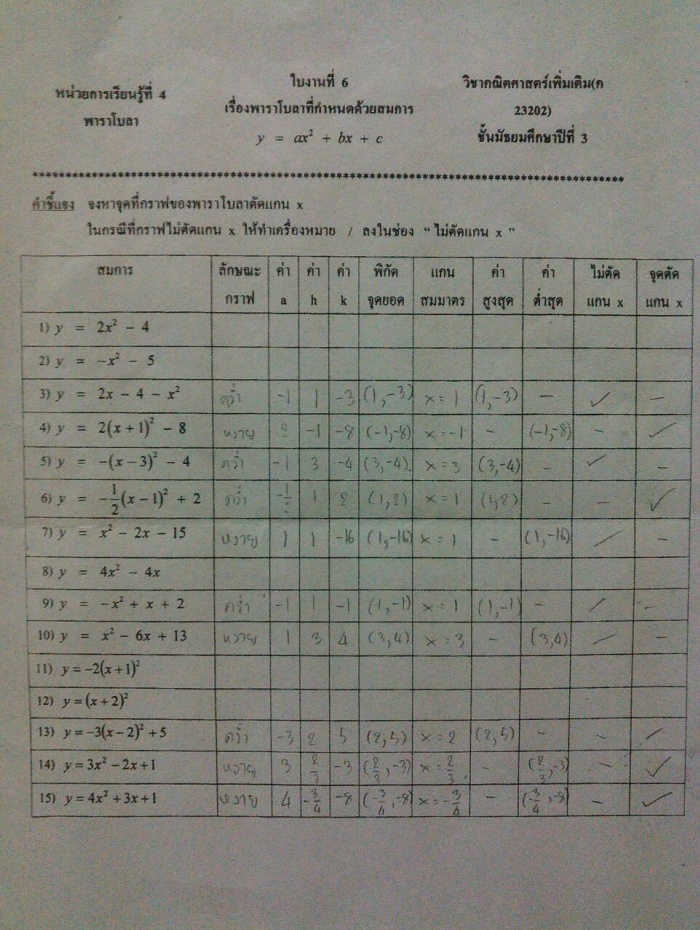 หน่วยการเรียนรู้ที่ 4
พาราโบลา
ใบงานที่ 6
เรื่องพาราโบลาที่กำหนดด้วยสมการ
y = ax² + bx + c
วิชาคณิตศาสตร์เพิ่มเติม(ค
23202)
ชั้นมัธยมศึกษาปีที่ 3
คำชี้แจง จงหาจุดที่กราฟของพาราโบลาตัดแกน x
ในกรณีที่กราฟไม่ตัดแกน x ให้ทำเครื่องหมาย / ลงในช่อง “ ไม่ตัดแกน x ”
สมการ ลักษณะกราฟ ค่า a ค่า h ค่า k พิกัดจุดยอด แกนสมมาตร ค่าสูงสุด ค่าต่ำสุด ไม่ตัดแกน x จุดตัดแกน x
1) y = 2x² − 4
2) y = −x² − 5
3) y = 2x − 4 − x² คว่ำ -1 1 -3 (1,-3) x = 1 (1,-3) − ✓ −
4) y = 2(x + 1)² − 8 หงาย 2 -1 -8 (-1,-8) x = -1 - (-1,-8) − ✓
5) y = −(x − 3)² − 4 คว่ำ -1 3 -4 (3,-4) x = 3 (3,-4) - ✓ −
6) y = −1/2(x − 1)² + 2 คว่ำ -1/2 1 2 (1,2) x = 1 (1,2) − − ✓
7) y = x² − 2x − 15 หงาย 1 1 -16 (1,-16) x = 1 - (1,-16) / −
8) y = 4x² − 4x
9) y = −x² + x + 2 คว่ำ -1 1 -1 (1,-1) x = 1 (1,-1) − / −
10) y = x² − 6x + 13 หงาย 1 3 4 (3,4) x = 3 - (3,4) / −
11) y = −2(x + 1)²
12) y = (x + 2)²
13) y = −3(x − 2)² + 5 คว่ำ -3 2 5 (2,5) x = 2 (2,5) - - /
14) y = 3x² − 2x + 1 หงาย 3 2/3 -3 (2/3,-3) x = 2/3 - (2/3,-3) − ✓
15) y = 4x² + 3x + 1 หงาย 4 -3/4 -8 (-3/4,-8) x = -3/4 − (-3/4,-8) − ✓